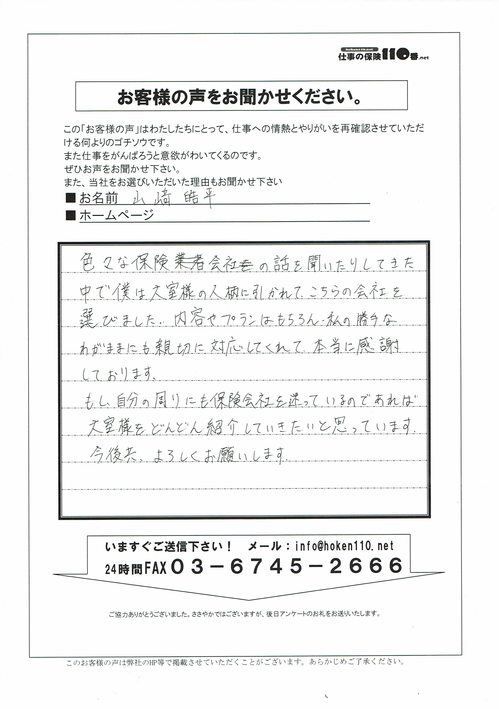 仕事の保険110番.net
お客様の声をお聞かせください。
この「お客様の声」はわたしたちにとって、仕事への情熱とやりがいを再確認させていただ
ける何よりのゴチソウです。
また仕事をがんばろうと意欲がわいてくるのです。
ぜひお声をお聞かせ下さい。
また、当社をお選びいただいた理由もお聞かせ下さい
■お名前 山﨑 皓平
■ホームページ
色々な保険業者会社の話を聞いたりしてきた
中で僕は大室様の人柄に引かれて、こちらの会社を
選びました。内容やプランはもちろん、私の勝手な
わがままにも親切に対応してくれて、本当に感謝
しております。
もし、自分の周りにも保険会社を迷っているのであれば
大室様をどんどん紹介していきたいと思っています。
今後共、よろしくお願いします。
いますぐご送信下さい！ メール：info@hoken110.net
24時間FAX 03-6745-2666
ご協力ありがとうございました。ささやかではございますが、後日アンケートのお礼をお送りいたします。
このお客様の声は弊社のHP等で掲載させていただくことがございます。あらかじめご了承ください。